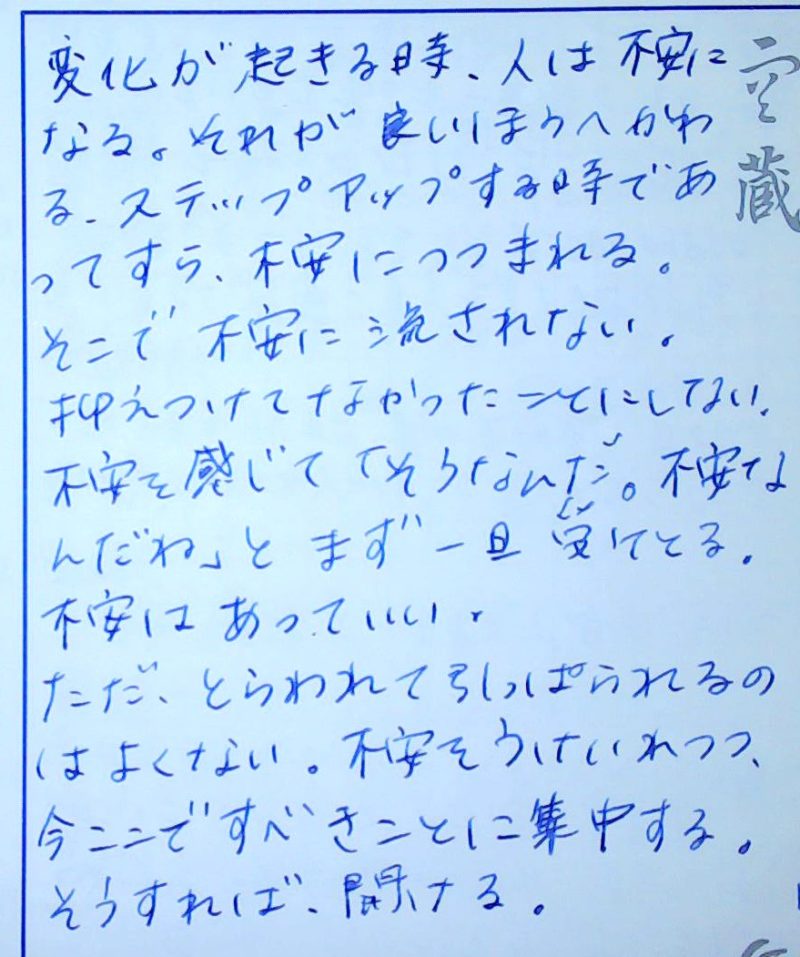 変化が起きる時、人は不安に
なる。それが良いほうへかわ
る、ステップアップする時であ
ってすら、不安につつまれる。
そこで不安に流されない。
抑えつけてなかったことにしない。
不安を感じて「そうなんだ。不安な
んだね」とまず一旦受けとる。
不安はあっていい。
ただ、とらわれて引っぱられるの
はよくない。不安をうけいれつつ、
今ここですべきことに集中する。
そうすれば、開ける。
空蔵